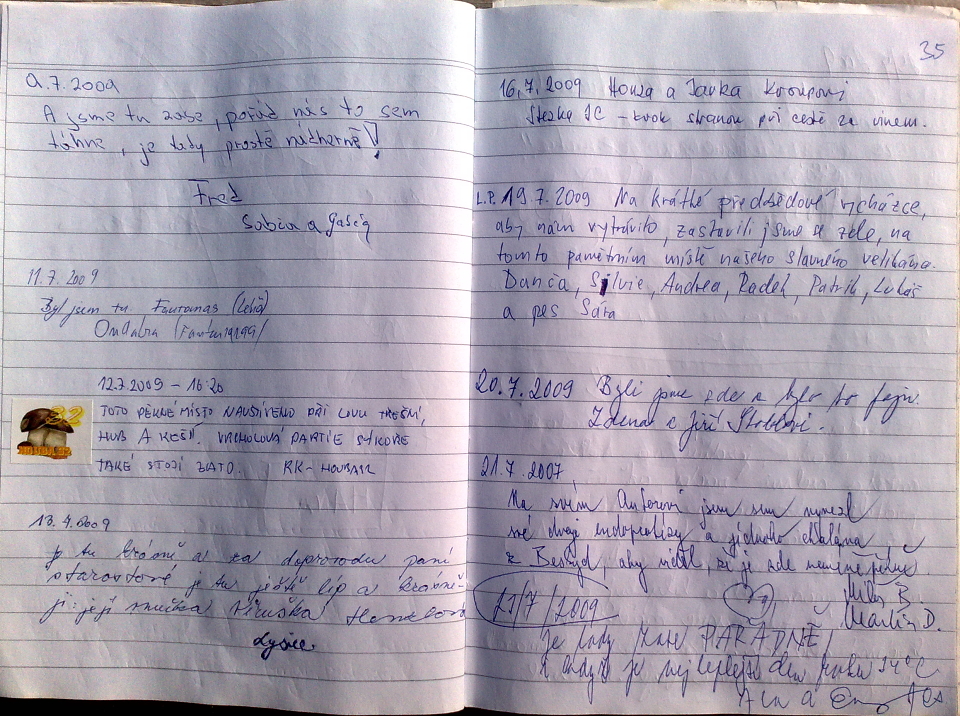 9.7.2009
A jsme tu zase, pořád nás to sem
táhne, je tady prostě nádherně!
Fred
Sabča a
11.7.2009
Byl jsem tu. Fantomas
12.7.2009 - 16:20
TOTO PĚKNÉ MÍSTO NAVŠTÍVENO PŘI LOVU TŘEŠNÍ,
HUB A KEŠÍ. VRCHOLOVÁ PARTIE SÝKOŘE
TAKÉ STOJÍ ZATO. RK-HOUBAŘ
13.7.2009
je tu krásně a za doprovodu paní
starostové je tu ještě líp a krásně-
ji: její vnučka
Lysice.
35
16.7.2009 Honza a Janka Kroupovi
Stezka JC - krok stranou při cestě za vínem.
L.P. 19.7.2009 Na krátké předobědové vycházce,
aby nám vytrávilo, zastavili jsme se zde, na
tomto pamětním místě našeho slavného velikána.
Danča, Silvie, Andrea, Radek, Patrik, Lukáš
a pes Sára
20.7.2009 Byli jsme zde a bylo to fajn.
Zdena a Jiří
21.7.2007
Na svém jsem sem vynesl
své dvoje endoprotézy a jednoho chalana
z Beskyd, aby viděl, že je zde neméně pěkně
Milos B.
Martin D.
21/7/2009
je tady PARÁDNĚ!
i když je nejteplejší den roku 34°C